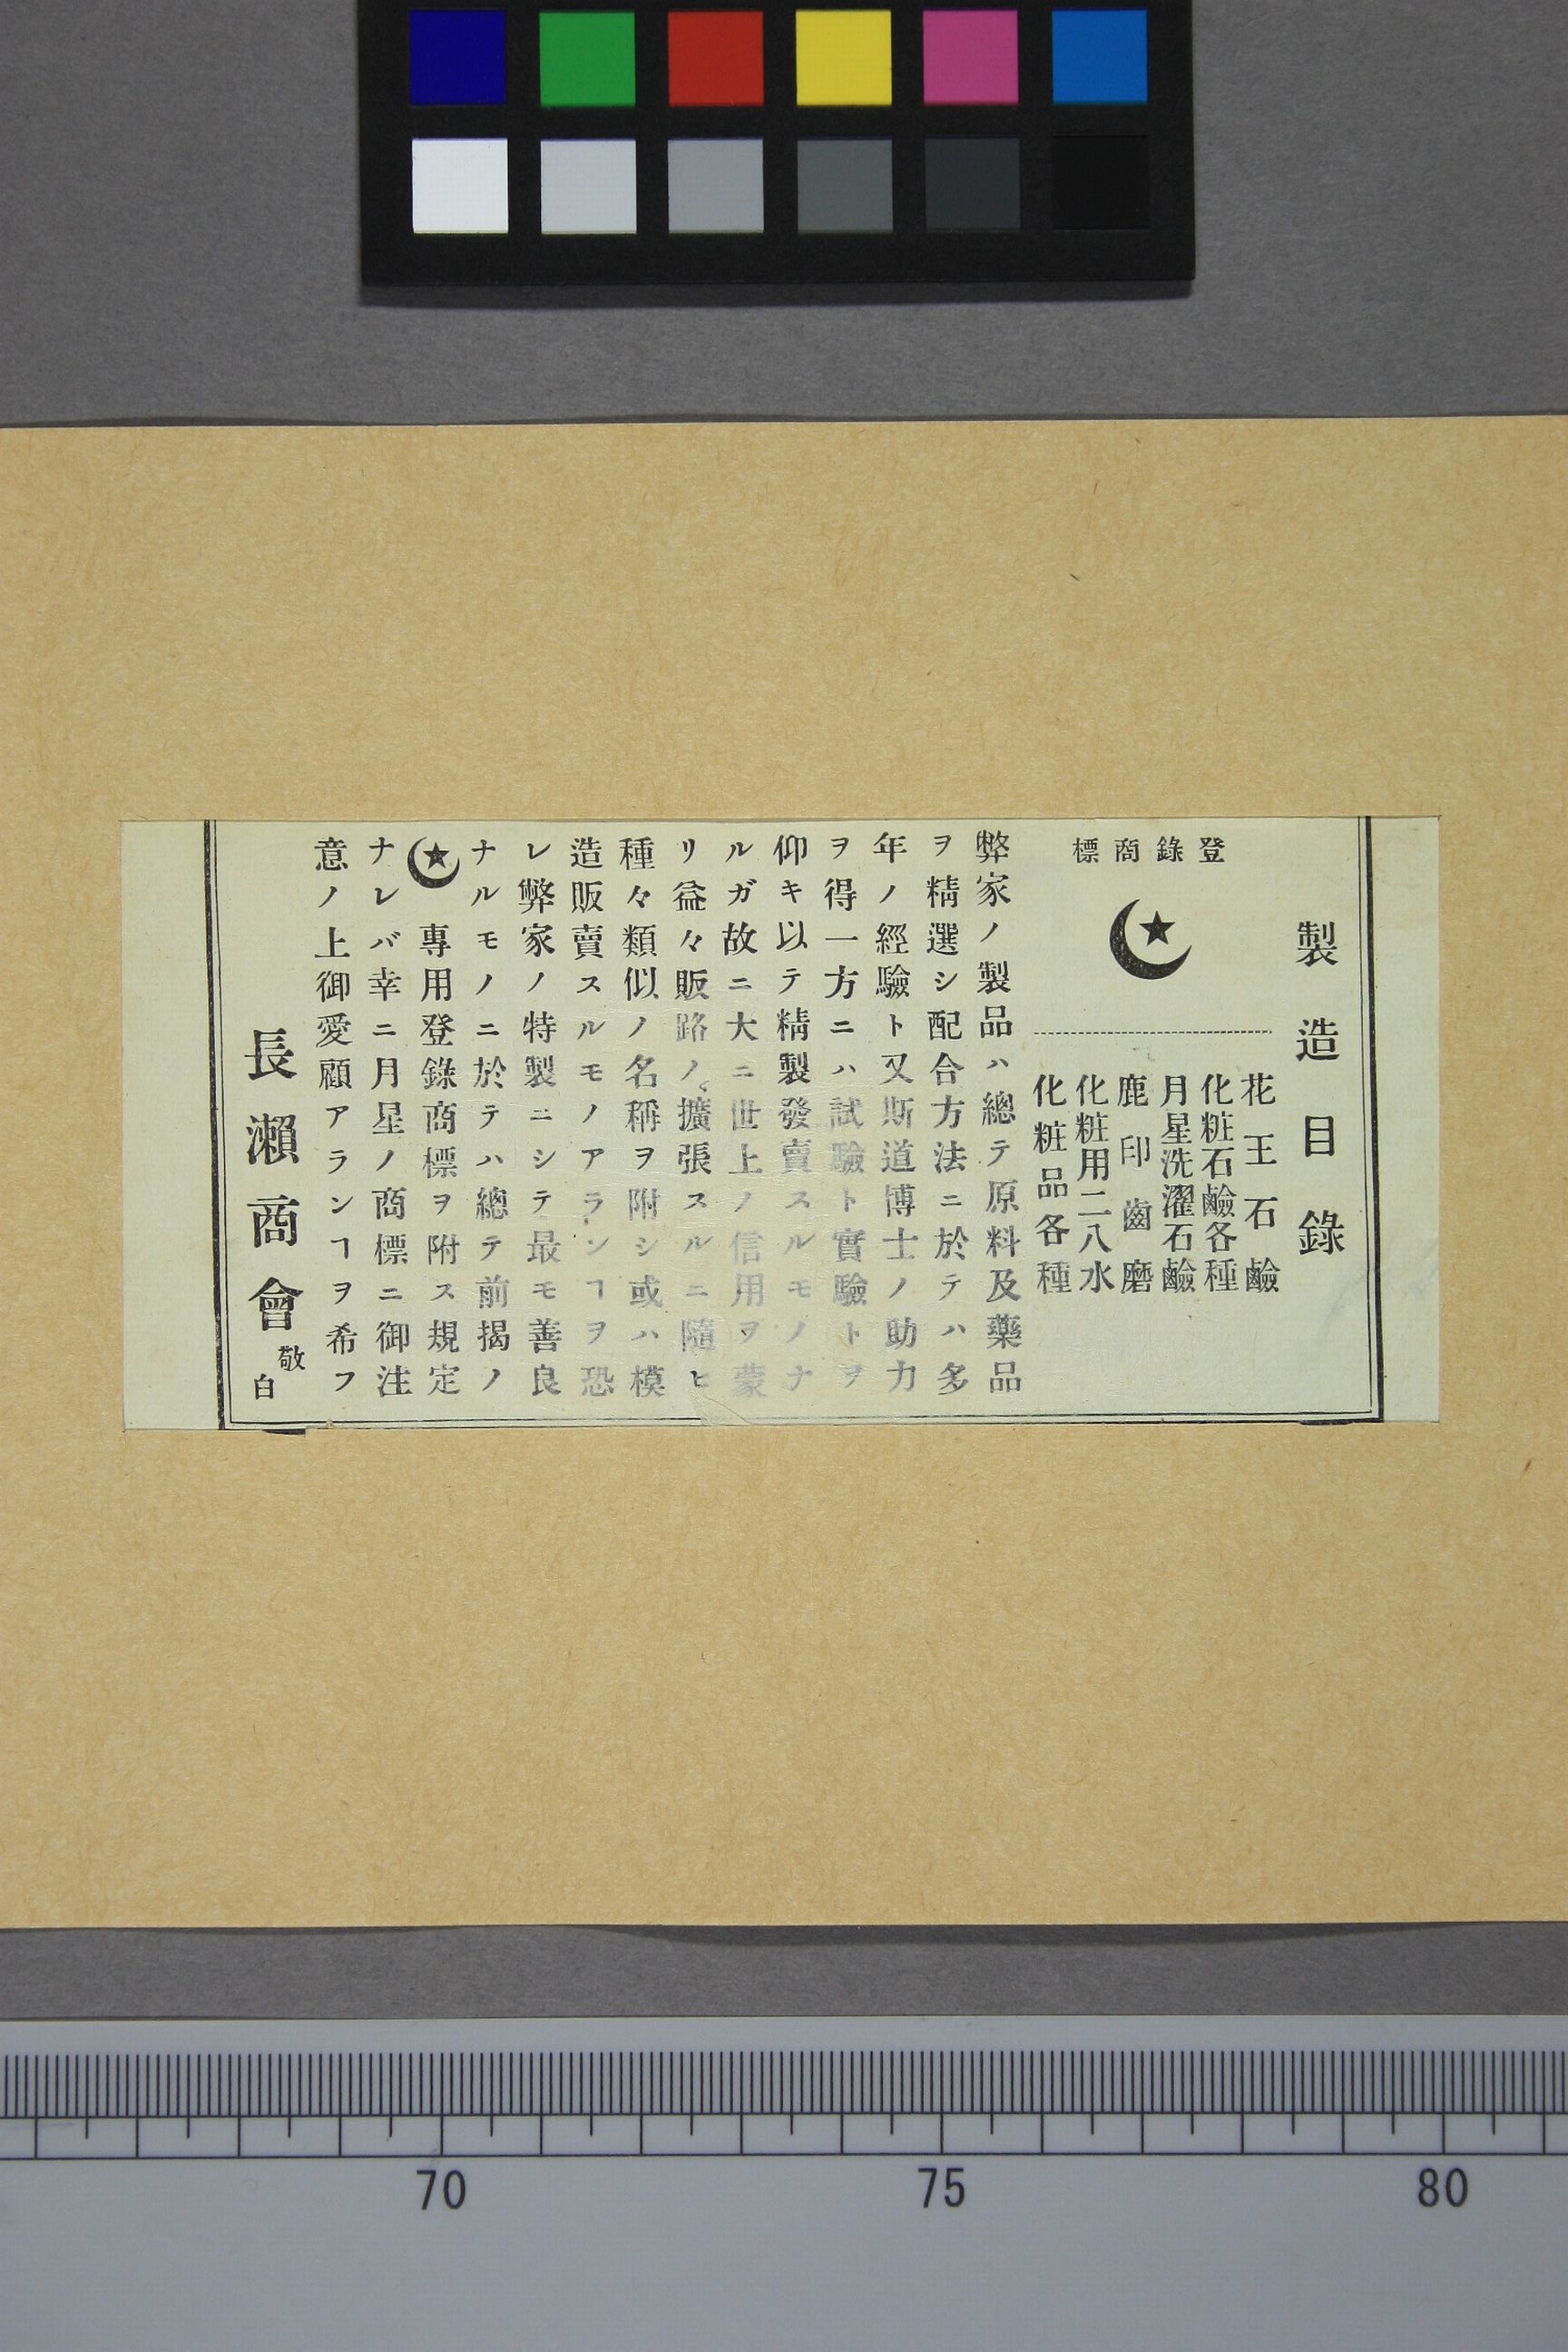 製造目錄
登錄商標
花王石鹼
化粧石鹼各種
月星洗濯石鹼
鹿印齒磨
化粧用二八水
化粧品各種
弊家ノ製品ハ總テ原料及藥品
ヲ精選シ配合方法ニ於テハ多
年ノ經驗ト又斯道博士ノ助力
ヲ得一方ニハ試驗ト實驗トヲ
仰キ以テ精製發賣スルモノナ
ルガ故ニ大ニ世上ノ信用ヲ蒙
リ益々販路ノ擴張スルニ隨ヒ
種々類似ノ名稱ヲ附シ或ハ模
造販賣スルモノアランヿヲ恐
レ弊家ノ特製ニシテ最モ善良
ナルモノニ於テハ總テ前揭ノ
專用登錄商標ヲ附ス規定
ナレバ幸ニ月星ノ商標ニ御注
意ノ上御愛顧アランヿヲ希フ
長瀨商會敬白
70 75 80